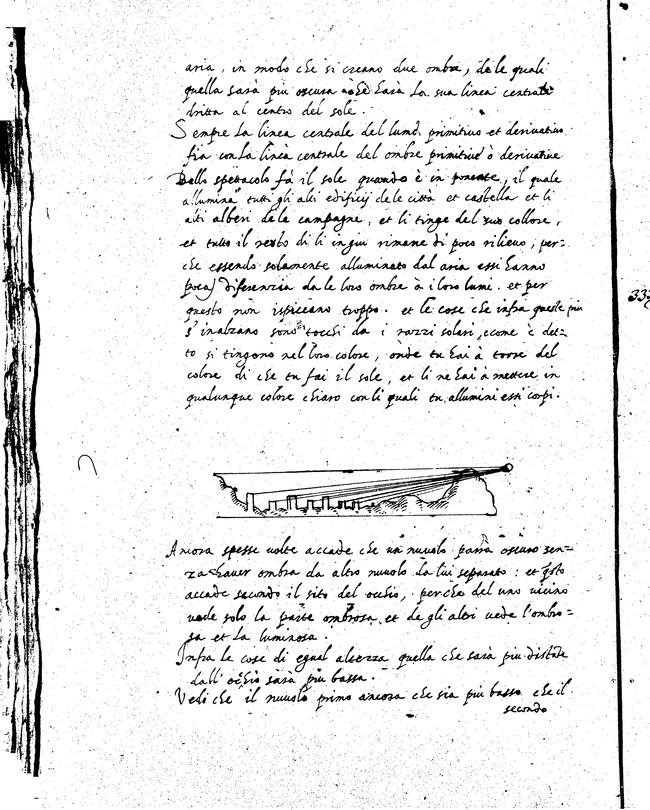 aria, in modo che si creano due ombre, de le quali
quella sarà piu oscura che harà la sua linea centrale
dritta al centro del sole.
Sempre la linea centrale del lume primitiuo et deriuatiuo
fia con la linea centrale del ombre primitiue ò deriuatiue
Dello spettacolo fà il sole quando è in ponente, il quale
allumina tutti gli alti edifitij de le città et castella et li
alti alberi de le campagne, et li tinge del suo collore,
et tutto il resto di li in giu rimane di poco rilieuo, per=
che essendo solamente alluminato dal aria essi hanno
poca diferenzia da le loro ombre à i loro lumi. et per
questo non ispiccano troppo. et le cose che infra queste piu
s'inalzano sono tocchi da i razzi solari, e come è det=
to si tingono nel loro colore, onde tu hai à torre del
colore di che tu fai il sole, et li ne hai à mettere in
qualunque colore chiaro con li quali tu allumini essi corpi.
332
Ancora spesse uolte accade che un nuuolo parrà oscuro sen=
za hauer ombra da altro nuuolo da lui separato: et
accade secondo il sito del occhio, perche del uno uicino
uede solo la parte ombrosa, et de gli altri uede l'ombro=
sa et la luminosa.
Infra le cose di egual altezza quella che sarà piu distāte
dall'ochio sarà piu bassa.
Vedi che il nuuolo primo ancora che sia piu basso che il
secondo